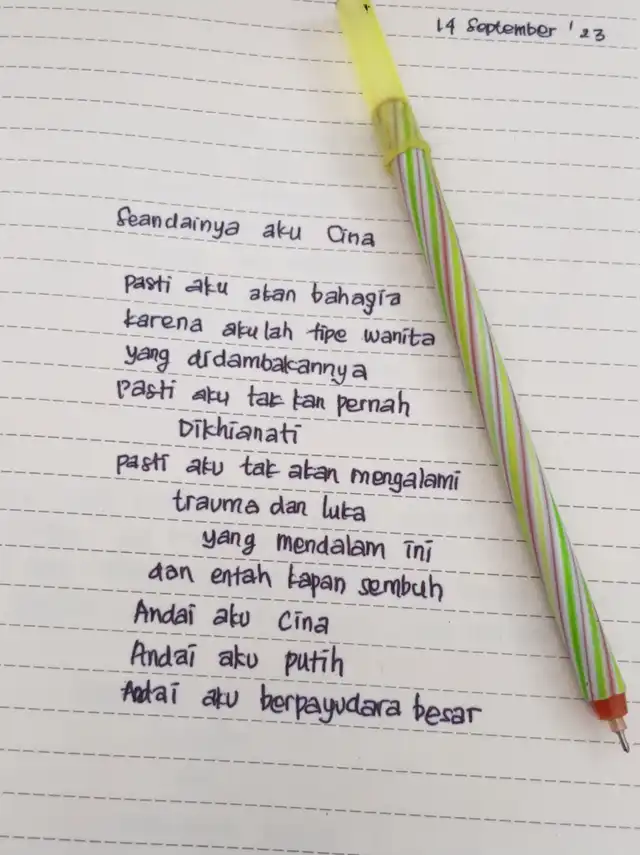 14 September '23
Seandainya aku Cina
pasti aku akan bahagia
karena akulah tipe wanita
yang didambakannya
pasti aku tak kan pernah
Dikhianati
pasti aku tak akan mengalami
trauma dan luka
yang mendalam ini
dan entah kapan sembuh
Andai aku Cina
Andai aku putih
Andai aku berpayudara besar